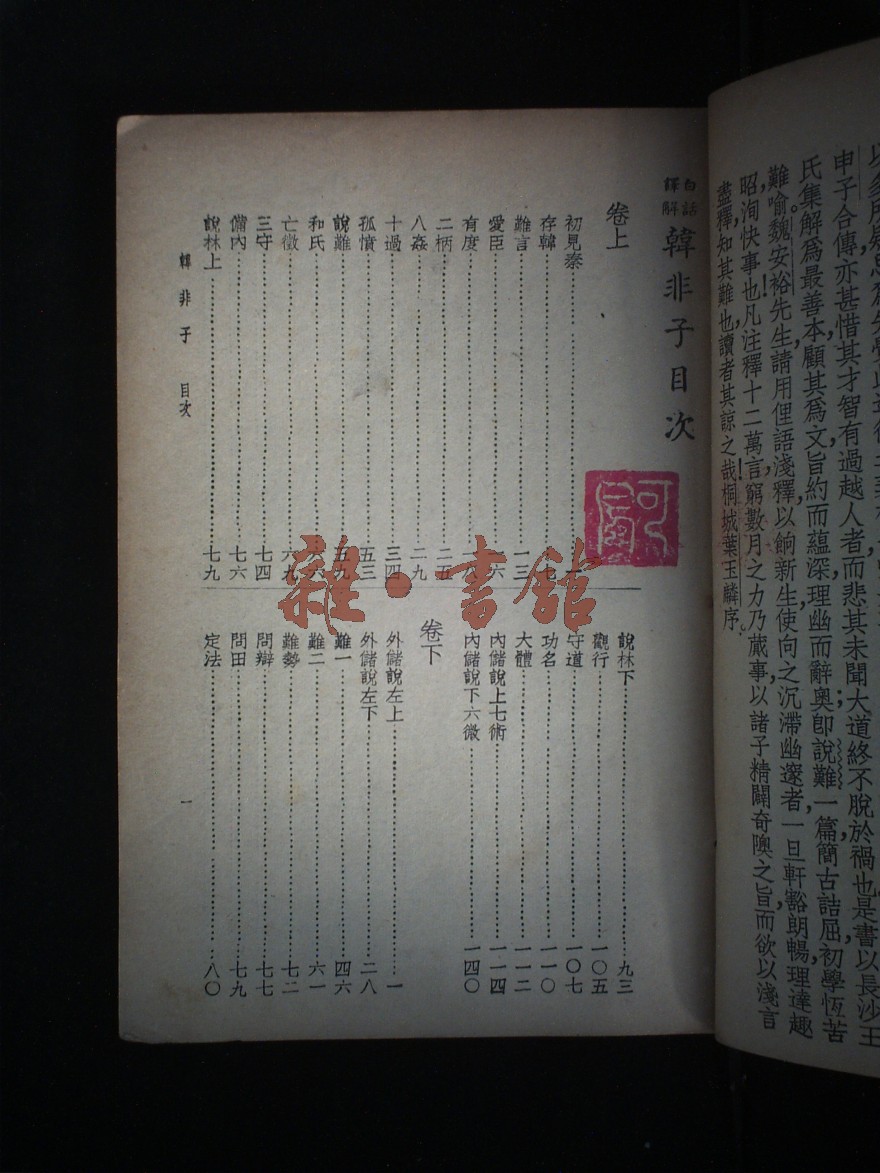 申子合傳,亦甚惜其才智有過越人者,而悲其未聞大道,終不脫於禍也;是書以長沙王
氏集解爲最善本,顧其爲文旨約而蘊深,理幽而辭奧,即說難一篇,簡古詰屈,初學恆苦
難喻。魏安裕先生請用俚語淺釋,以餉新生,使向之沉滯幽邃者,一旦軒豁朗暢,理達趣
昭,洵快事也!凡注釋十二萬言,窮數月之力乃蕆事,以諸子精闢奇隩之旨,而欲以淺言
盡釋,知其難也,讀者其諒之哉!桐城葉玉麟序。
白話譯解 韓非子目次
卷上
初見秦
存韓 七
難言 一三
愛臣 六
有度 八
二柄 二五
八姦 二九
十過 三四
孤憤 五三
說難 五九
和氏 六六
亡徵 六九
三守 七四
備內 七六
說林上 七九
說林下 九三
觀行 一〇五
守道 一〇七
功名 一一〇
大體 一一二
內儲說上七術 一一四
內儲說下六微 一四〇
卷下
外儲說左上 一
外儲說左下 二八
難一 四六
難二 六一
難勢 七二
問辯 七七
問田 七九
定法 八〇
韓非子 目次
一
雜·書館